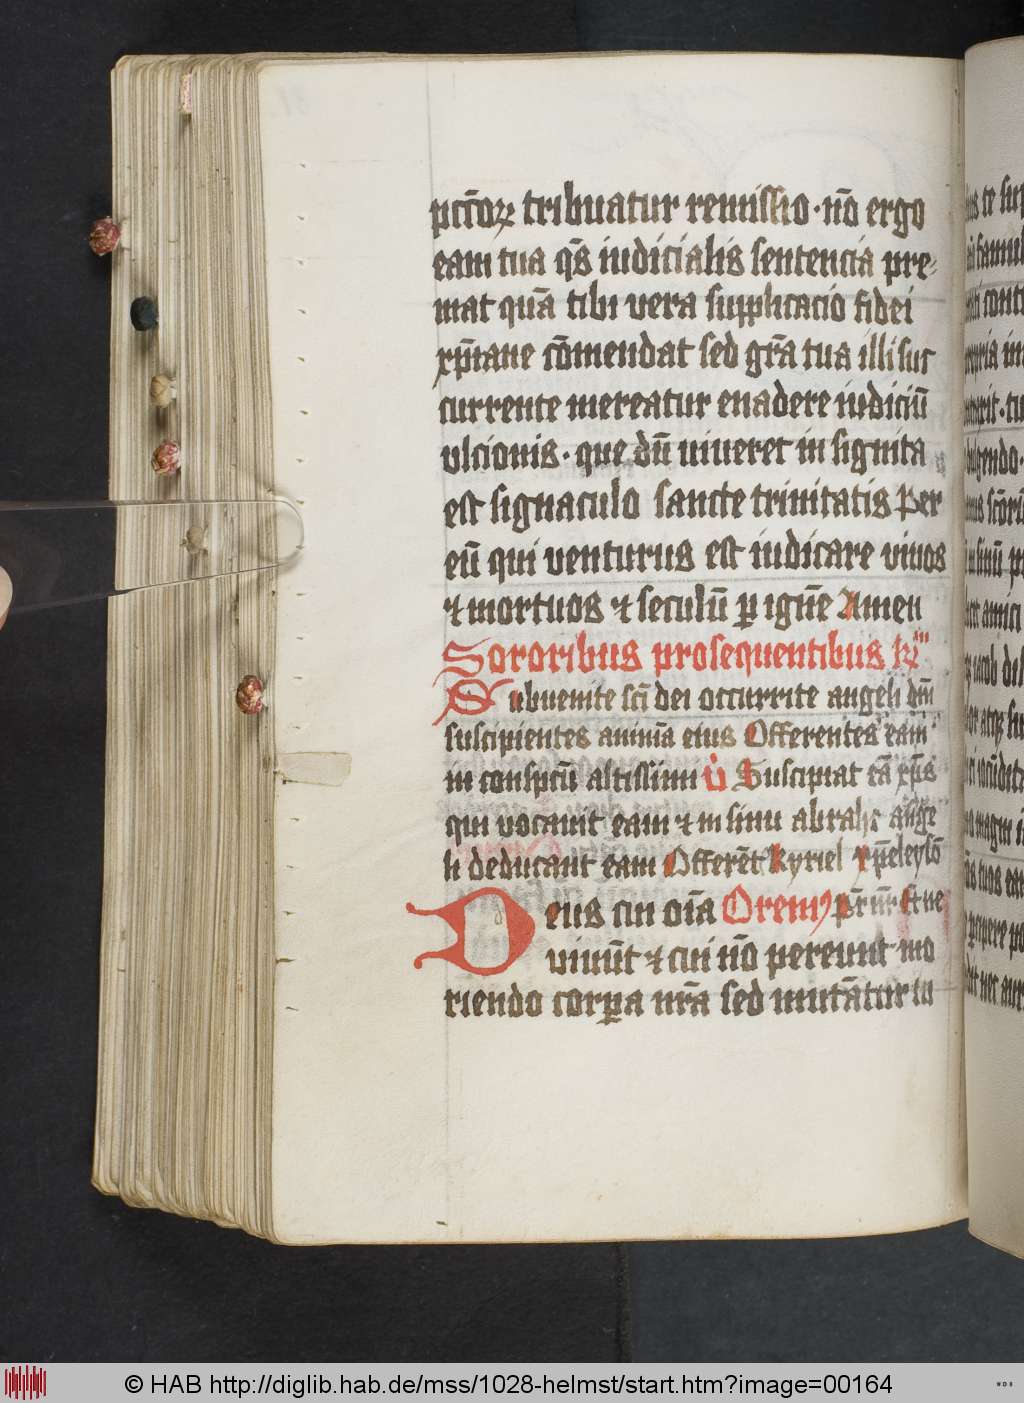 pctōꝝ tribuatur remissio · nō ergo
eam tua qs̄ iudicialis sentencia pre⸗
mat quā tibi vera supplicacio fidei
xp̄iane cōmendat sed gr̄a tua illi suc
currente mereatur euadere iudiciū
vlcionis · que dū uiueret in signita
est signaculo sancte trinitatis Per
eū qui venturus est iudicare viuos
⁊ mortuos ⁊ seculū p ignē Amen
Sororibus prosequentibus
Subuenite sc̄i dei occurrite angeli dn̄i
suscipientes animā eius Offerentes eam
in conspcū altissimi v̄ Suscipiat tā xp̄s
qui vocauit eam ⁊ in sinu abrahe ange
li deducant eam Offerēt Kyriel xp̄eleysō
Deus cui oīa Oremꝰ pr̄ nr̄ Et ne
viuūt ⁊ cui nō pereunt mo
riendo corpora nr̄a sed mutātur in
© HAB http://diglib.hab.de/mss/1028-helmst/start.htm?image=00164